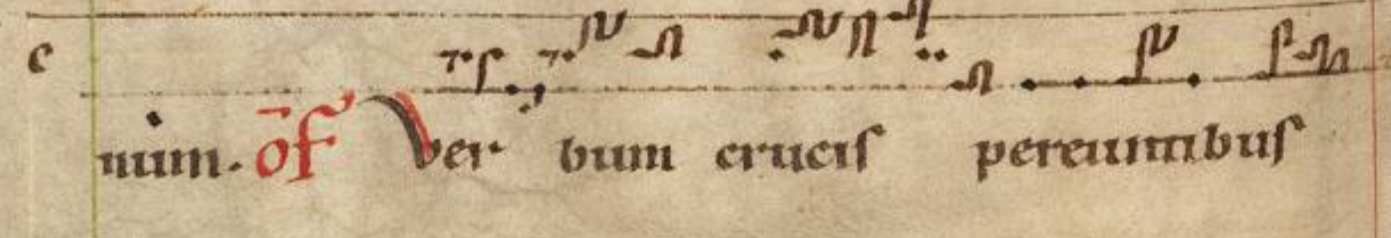 c
num. of̄ Ver bum crucis pereuntibus